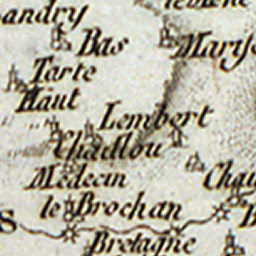 andry
Bas
Tarte
Haut
Lembert
Chadlou
Medecin
le Brochan
Bretagne